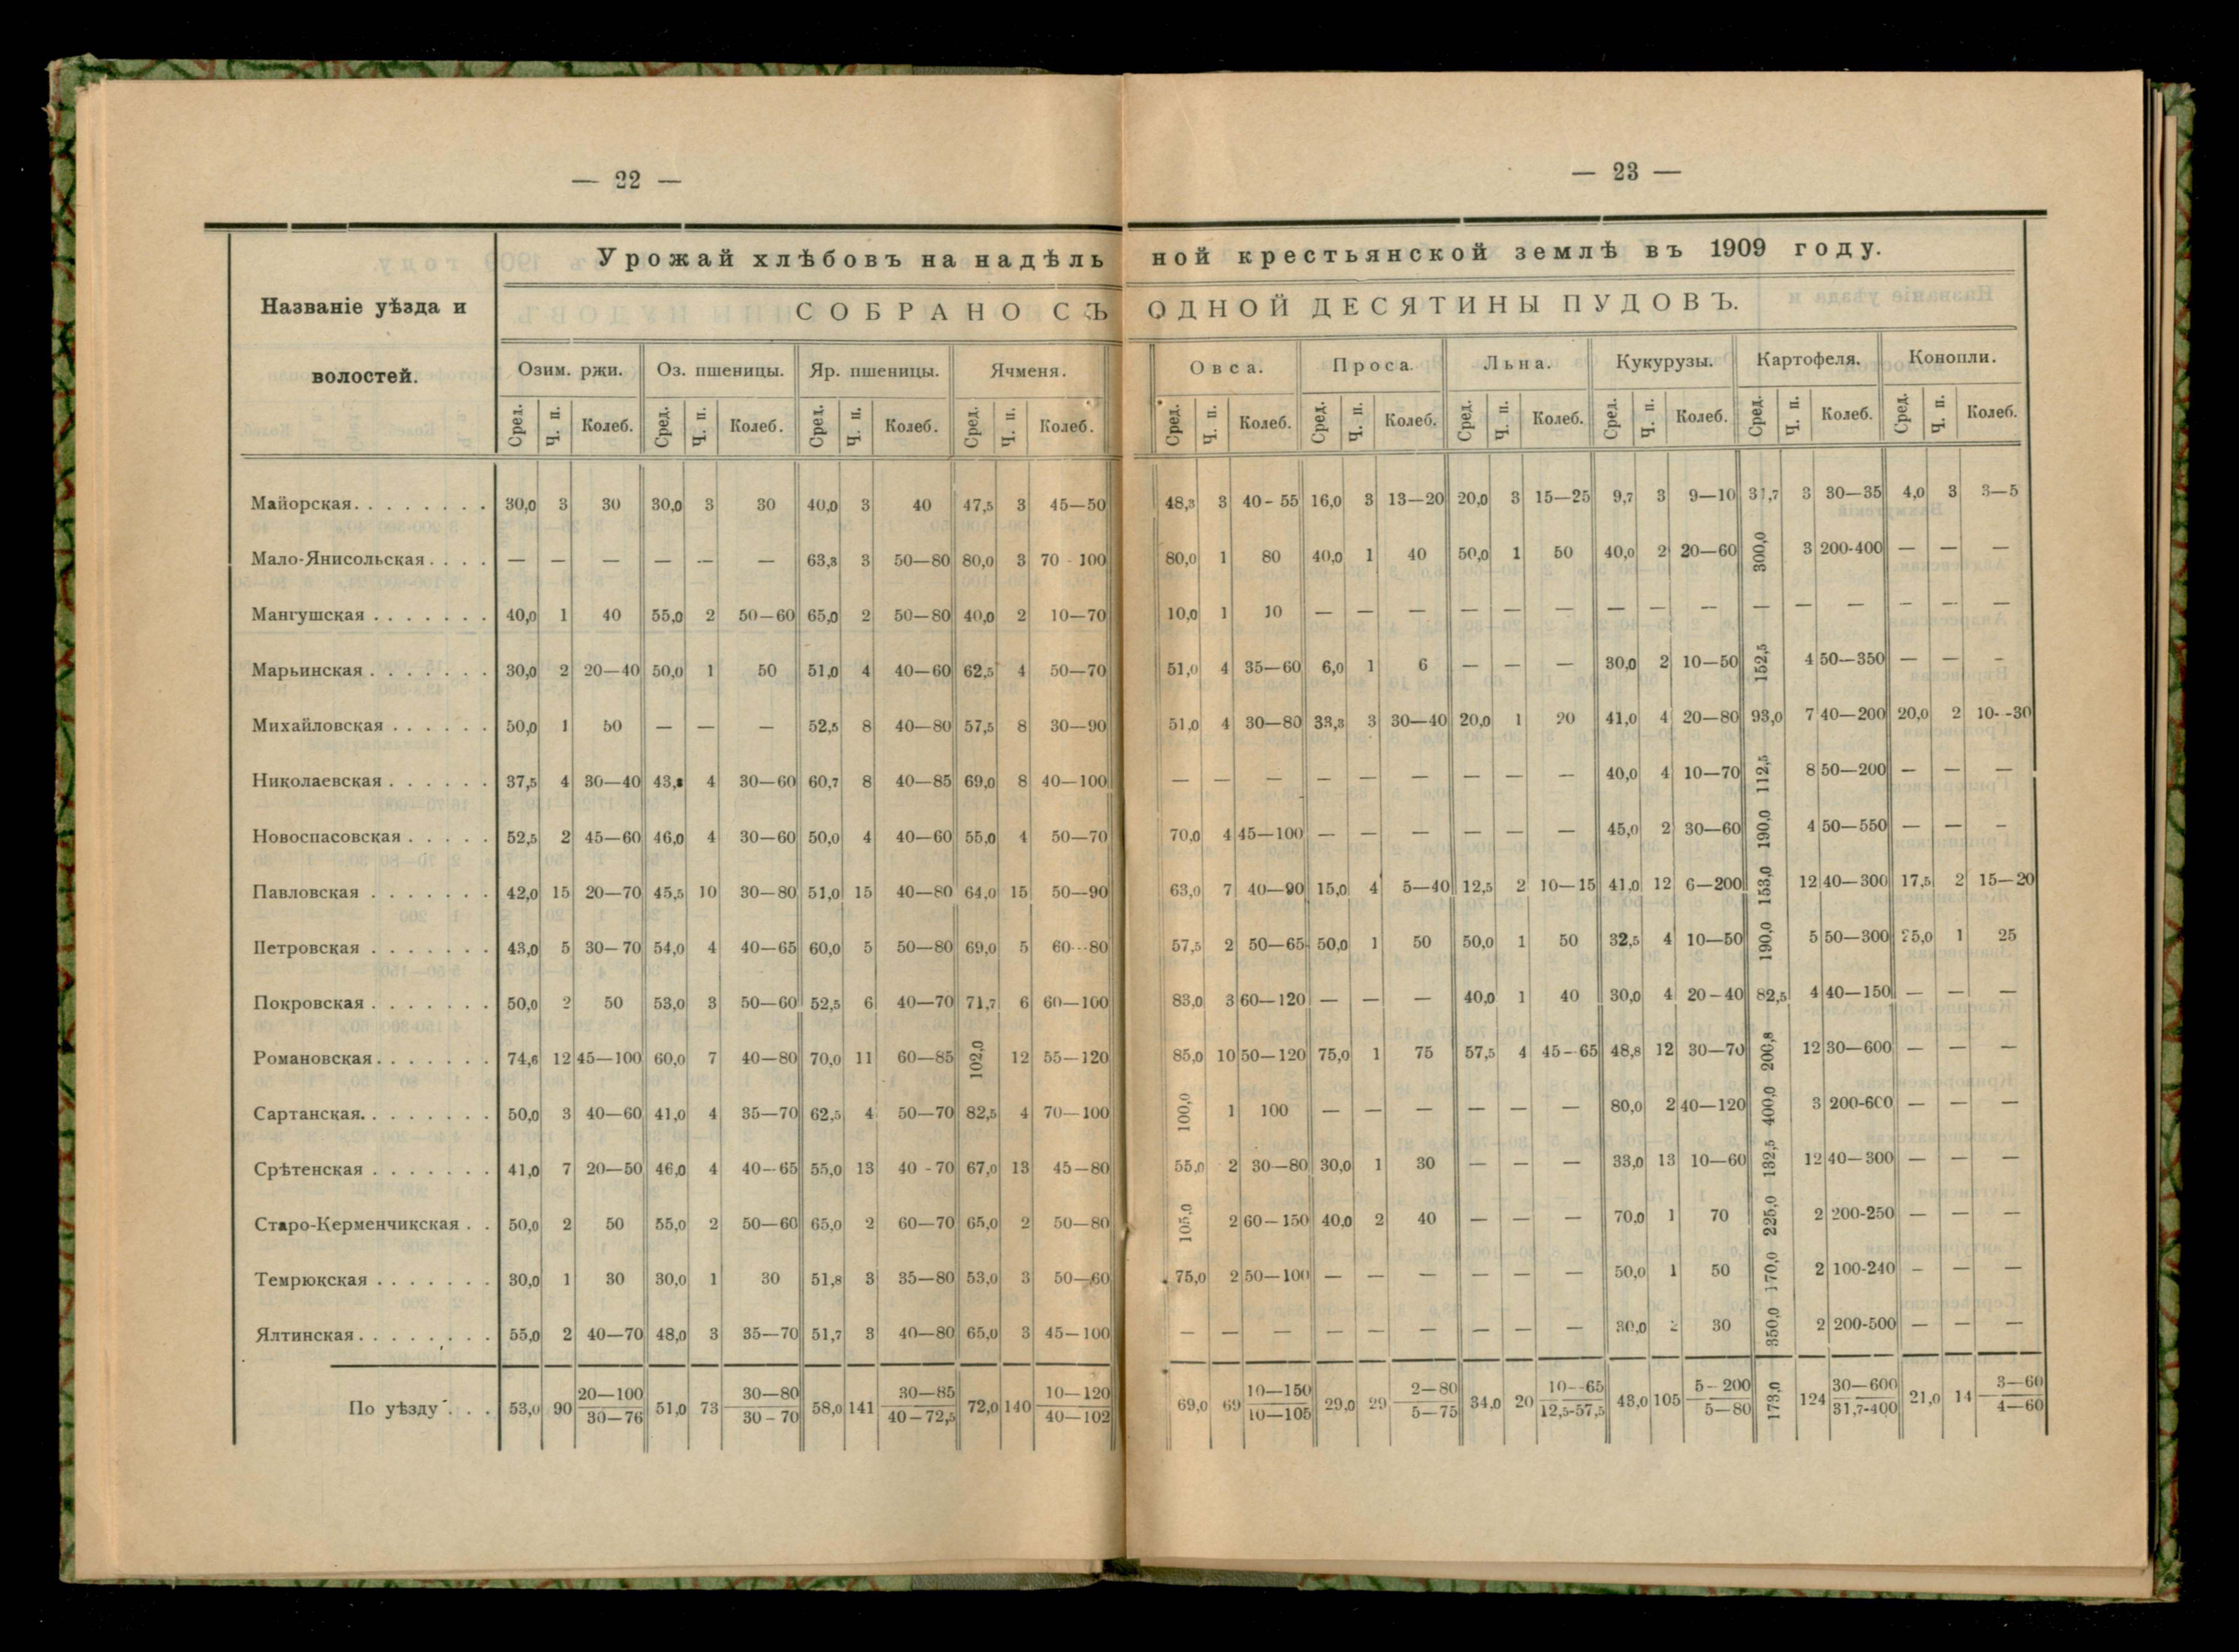 — 22 —
— 23 —
Урожай хлѣбовъ на надѣль ной крестьянской землѣ въ 1909 году.
Названіе уѣзда и волостей.
СОБРАНО СЪ ОДНОЙ ДЕСЯТИНЫ ПУДОВЪ.
Озим. ржи. Оз. пшеницы. Яр. пшеницы. Ячменя. Овса. Проса. Льна. Кукурузы. Картофеля. Конопли.
Сред. Ч. п. Колеб. Сред. Ч. п. Колеб. Сред. Ч. п. Колеб. Сред. Ч. п. Колеб. Сред. Ч. п. Колеб. Сред. Ч. п. Колеб. Сред. Ч. п. Колеб. Сред. Ч. п. Колеб. Сред. Ч. п. Колеб. Сред. Ч. п. Колеб.
Майорская. . . . . . . . 30,0 3 30 30,0 3 30 40,0 3 40 47,5 3 45—50 48,3 3 40-55 16,0 3 13—20 20,0 3 15—25 9,7 3 9—10 31,7 3 30—35 4,0 3 3—5
Мало-Янисольская. . . . — — — — — — 63,3 3 50—80 80,0 3 70-100 80,0 1 80 40,0 1 40 50,0 1 50 40,0 2 20—60 300,0 3 200-400 — — —
Мангушская . . . . . . . 40,0 1 40 55,0 2 50—60 65,0 2 50—80 40,0 2 10—70 10,0 1 10 — — — — — — — — — — — — — — —
Марьинская . . . . . . . 30,0 2 20—40 50,0 1 50 51,0 4 40—60 62,5 4 50—70 51,0 4 35—60 6,0 1 6 — — — 30,0 2 10—50 152,5 4 50—350 — — —
Михайловская . . . . . . 50,0 1 50 — — — 52,5 8 40—80 57,5 8 30—90 51,0 4 30—80 33,3 3 30—40 20,0 1 20 41,0 4 20—80 93,0 7 40—200 20,0 2 10--30
Николаевская . . . . . . 37,5 4 30—40 43,8 4 30—60 60,7 8 40—85 69,0 8 40—100 — — — — — — — — — 40,0 4 10—70 112,5 8 50—200 — — —
Новоспасовская . . . . . 52,5 2 45—60 46,0 4 30—60 50,0 4 40—60 55,0 4 50—70 70,0 4 45—100 — — — — — — 45,0 2 30—60 190,0 4 50—550 — — —
Павловская . . . . . . . 42,0 15 20—70 45,5 10 30—80 51,0 15 40—80 64,0 15 50—90 63,0 7 40—90 15,0 4 5—40 12,5 2 10—15 41,0 12 6—200 153,0 12 40—300 17,5 2 15—20
Петровская . . . . . . . 43,0 5 30—70 54,0 4 40—65 60,0 5 50—80 69,0 5 60--80 57,5 2 50—65 50,0 1 50 50,0 1 50 32,5 4 10—50 190,0 5 50—300 25,0 1 25
Покровская . . . . . . . 50,0 2 50 53,0 3 50—60 52,5 6 40—70 71,7 6 60—100 83,0 3 60—120 — — — 40,0 1 40 30,0 4 20—40 82,5 4 40—150 — — —
Романовская. . . . . . . 74,6 12 45—100 60,0 7 40—80 70,0 11 60—85 102,0 12 55—120 85,0 10 50—120 75,0 1 75 57,5 4 45-65 48,8 12 30—70 200,8 12 30—600 — — —
Сартанская. . . . . . . . 50,0 3 40—60 41,0 4 35—70 62,5 4 50—70 82,5 4 70—100 100,0 1 100 — — — — — — 80,0 2 40—120 400,0 3 200-600 — — —
Срѣтенская . . . . . . . 41,0 7 20—50 46,0 4 40—65 55,0 13 40-70 67,0 13 45—80 55,0 2 30—80 30,0 1 30 — — — 33,0 13 10—60 132,5 12 40—300 — — —
Старо-Керменчикская . . 50,0 2 50 55,0 2 50—60 65,0 2 60—70 65,0 2 50—80 105,0 2 60—150 40,0 2 40 — — — 70,0 1 70 225,0 2 200-250 — — —
Темрюкская . . . . . . . 30,0 1 30 30,0 1 30 51,8 3 35—80 53,0 3 50—60 75,0 2 50—100 — — — — — — 50,0 1 50 170,0 2 100-240 — — —
Ялтинская . . . . . . . . 55,0 2 40—70 48,0 3 35—70 51,7 3 40—80 65,0 3 45—100 — — — — — — — — — 30,0 2 30 350,0 2 200-500 — — —
По уѣзду . . . 53,0 90 20—100 51,0 73 30—80 58,0 141 30—85 72,0 140 10—120 69,0 69 10—150 29,0 29 2—80 34,0 20 10--65 43,0 105 5-200 173,0 124 30—600 21,0 14 3—60
30—76 30-70 40-72,5 40—102 10—105 5—75 12,5-57,5 5—80 31,7-400 4—60